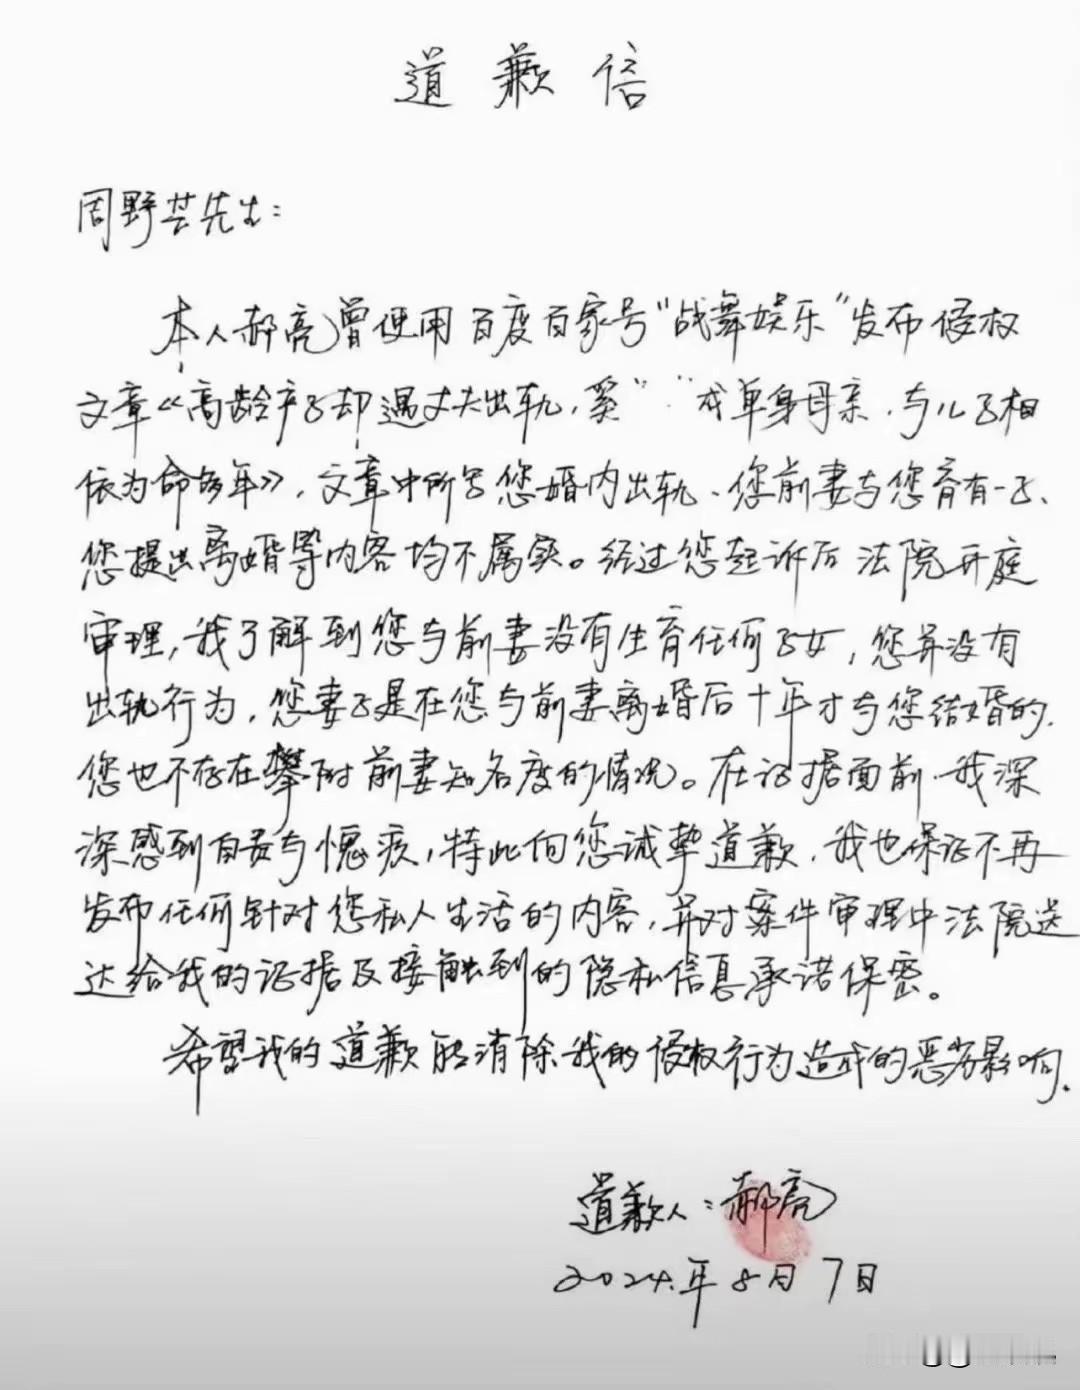 道歉信
周野芒先生：
本人郝亮曾使用百度百家号“战舞娱乐”发布侵权
文章《高龄产子却遇丈夫出轨，奚” “成单身母亲，与儿子相
依为命多年》，文章中所写您婚内出轨、您前妻与您育有一子、
您提出离婚等内容均不属实。经过您起诉后法院开庭
审理，我了解到您与前妻没有生育任何子女，您并没有
出轨行为，您妻子是在您与前妻离婚后十年才与您结婚的，
您也不存在攀附前妻知名度的情况。在证据面前，我深
深感到自责与愧疚，特此向您诚挚道歉，我也保证不再
发布任何针对您私人生活的内容，并对案件审理中法院送
达给我的证据及接触到的隐私信息承诺保密。
希望我的道歉能消除我的侵权行为造成的恶劣影响.
道歉人：郝亮
2024.年8月7日